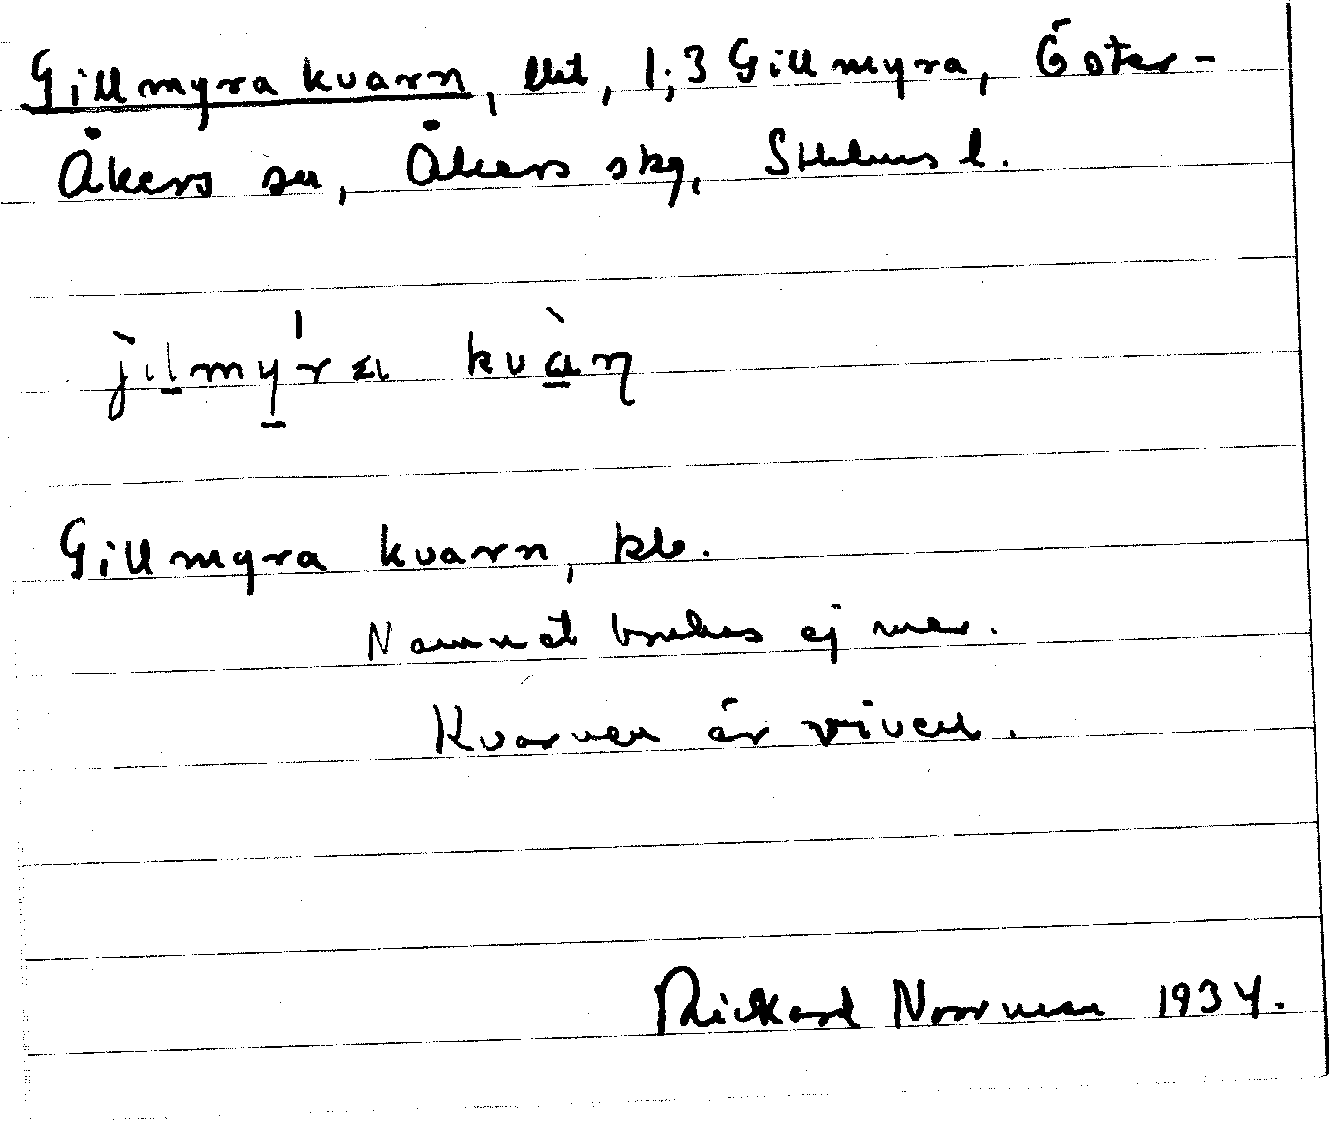 Gillmyra kvarn, lht, 1:3 Gillmyra, Öster-
Åkers sn, Åkers skg, Sthlms l.
jilmy'ra kvàɳ
Gillmyra kvarn, kb.
Namnet brukas ej mer.
Kvarnen är riven.
Rickard Norrman 1934.